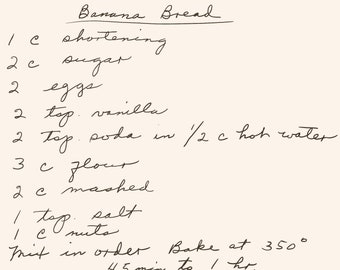 Banana Bread
1 c shortening
2 c sugar
2 eggs
2 tsp. vanilla
2 tsp. soda in 1/2 c hot water
3 c flour
2 c mashed
1 tsp. salt
1 c nuts
Mix in order Bake at 350°
45 min to 1 hr.